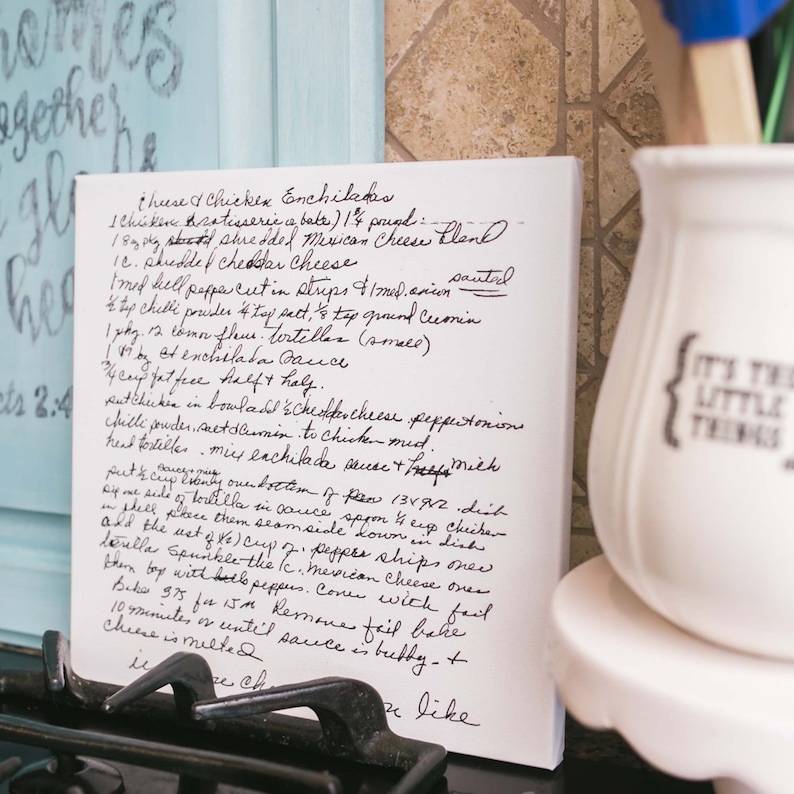 Cheese & Chicken Enchiladas
1 chicken (rotisserie or bake) 1 3/4 pound.
1 8 oz pkg shredded Mexican Cheese Blend
1 c. shredded cheddar cheese
1 med bell pepper cut in strips & 1 med. onion sauted
1/2 tsp chilli powder 1/4 tsp salt, 1/8 tsp ground Cumin
1 pkg. 12 flour. tortillas (small)
1 enchilada sauce
3/4 cup fat free half & half.
put chicken in bowl add 1/2 cheddar cheese. pepper & onions
chilli powder, salt & cumin. to chicken
heat tortillas. mix enchilada sauce & milk
put 1/2 cup sauce & milk over bottom of 13x9x2. dish
dip one side of tortilla in sauce spoon 1/4 cup chicken
in shell place them seam side down in dish
add the rest of cup of. strips over
tortillas sprinkle the 1c. Mexican cheese over
them top with peppers. Cover with foil
Bake 375 for 15 m Remove foil bake
10 minutes or until sauce is bubbly &
cheese is melted
like
homes
together
2.4
{IT'S THE
LITTLE
THINGS